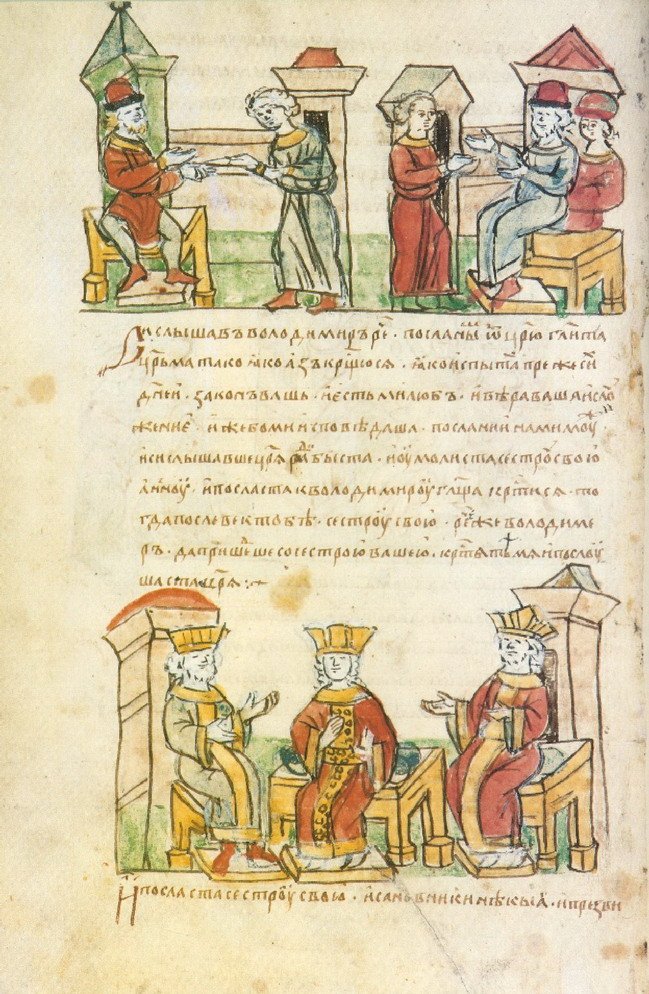 И слышавъ володимиръ рⷱе · посланыⷨ ѿ цр҃ю гл҃ита
цр҃ьма тако · ꙗко азъ крⷭщюся · ꙗко испытаⷯ преже сиⷯ
дн҃ей · законъ вашь · и есть ми любъ · и вѣра ваша и слоу
жение · иже бо ми исповѣдаша · послании нами моуⷤ
и си слышавше цр҃я раⷣ быста · и оумолиста сестроу свою
анноу · и посласта к володимироу гл҃ща крⷭтися · то
гда послевѣ к тобѣ · сестроу свою · рⷱе же володиме
ръ · да пришеⷣше со сестрою вашею · крⷭтять мя и послоу
шаста цр҃я :~
И посласта сестроу свою · и сановники нѣкыꙗ · и презви